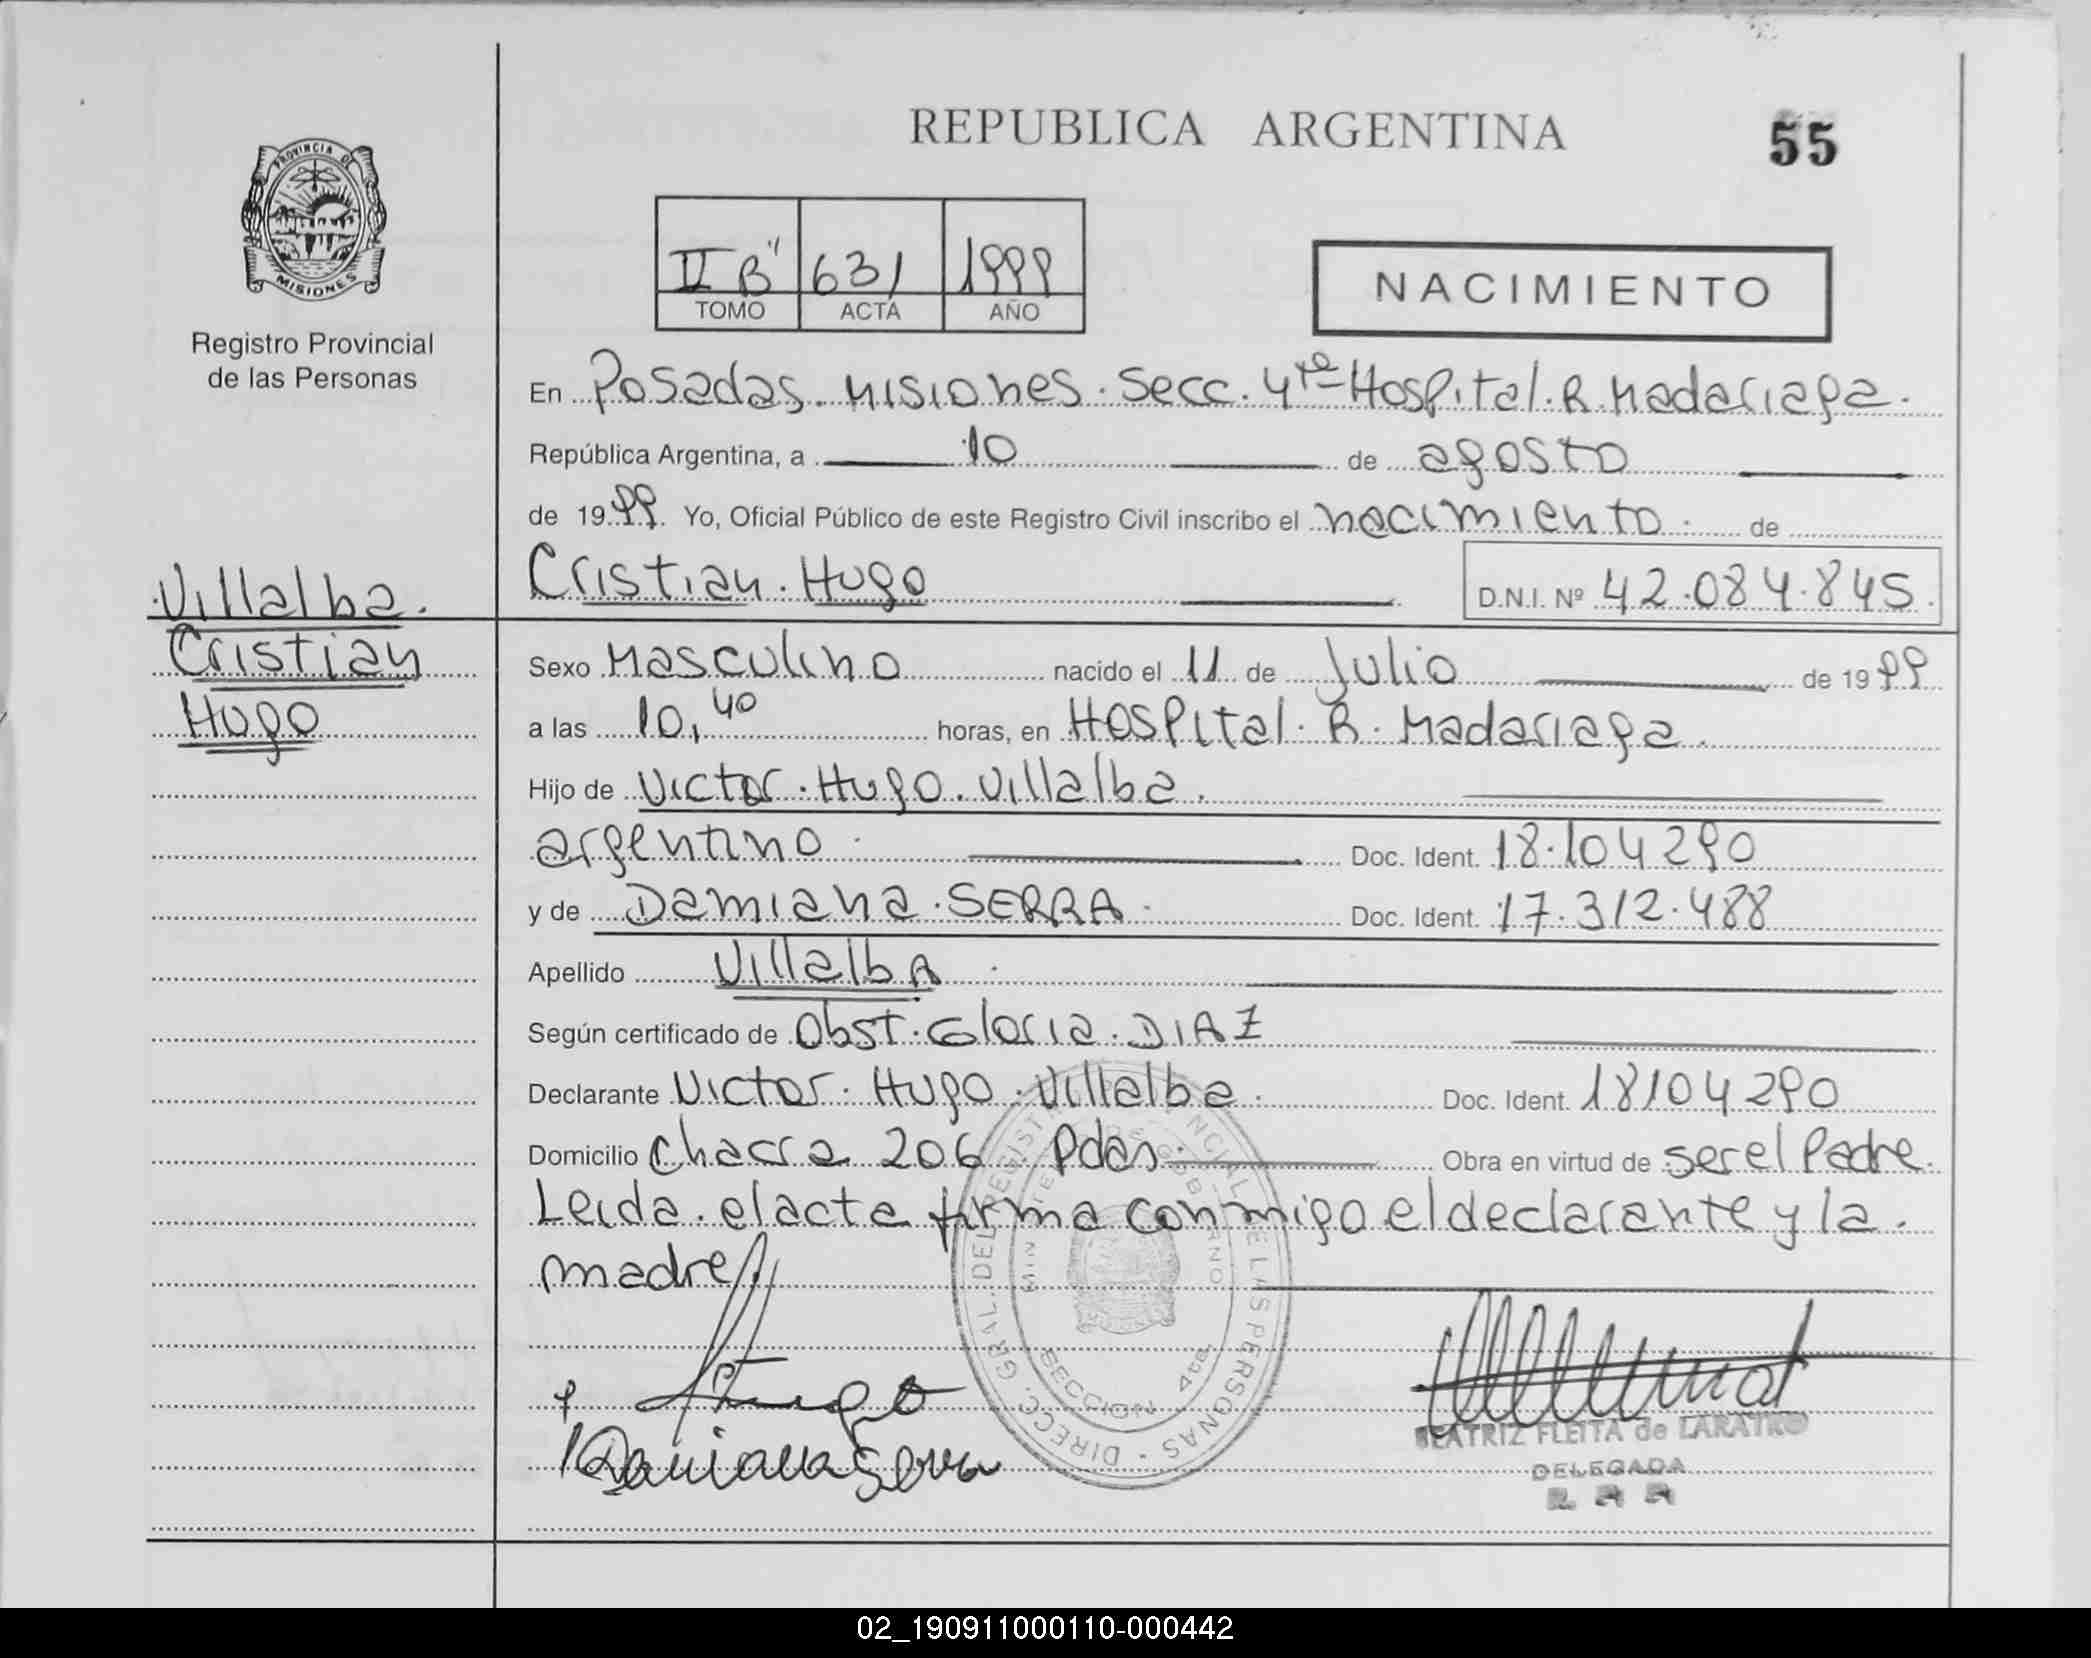 REPUBLICA ARGENTINA
55
PROVINCIA DE
MISIONES
Registro Provincial
de las Personas
II "B" 631 1999
TOMO ACTA AÑO
NACIMIENTO
En Posadas. Misiones. Secc. 4ta Hospital. R. Madariaga.
República Argentina, a 10 de agosto
de 1999. Yo, Oficial Público de este Registro Civil inscribo el nacimiento. de
Cristian. Hugo D.N.I. Nº 42.084.845.
Villalba.
Cristian
Hugo
Sexo Masculino nacido el 11 de Julio de 1999
a las 10,40 horas, en Hospital. R. Madariaga.
Hijo de Victor. Hugo. Villalba.
argentino. Doc. Ident. 18.104290
y de Damiana. SERRA. Doc. Ident. 17.312.488
Apellido VillalbA
Según certificado de Obst. Gloria. DIAZ
Declarante Victor. Hugo. Villalba. Doc. Ident. 18104290
Domicilio Chacra 206. Pdas. Obra en virtud de ser el Padre.
Leida. el acta firma conmigo el declarante y la.
madre
DIRECC. GRAL. DEL REGISTRO PROVINCIAL DE LAS PERSONAS
MINISTERIO DE GOBIERNO
SECCION 4ta.
Hugo
Damiana Serra
BEATRIZ FLEITA de
DELEGADA
02_190911000110-000442